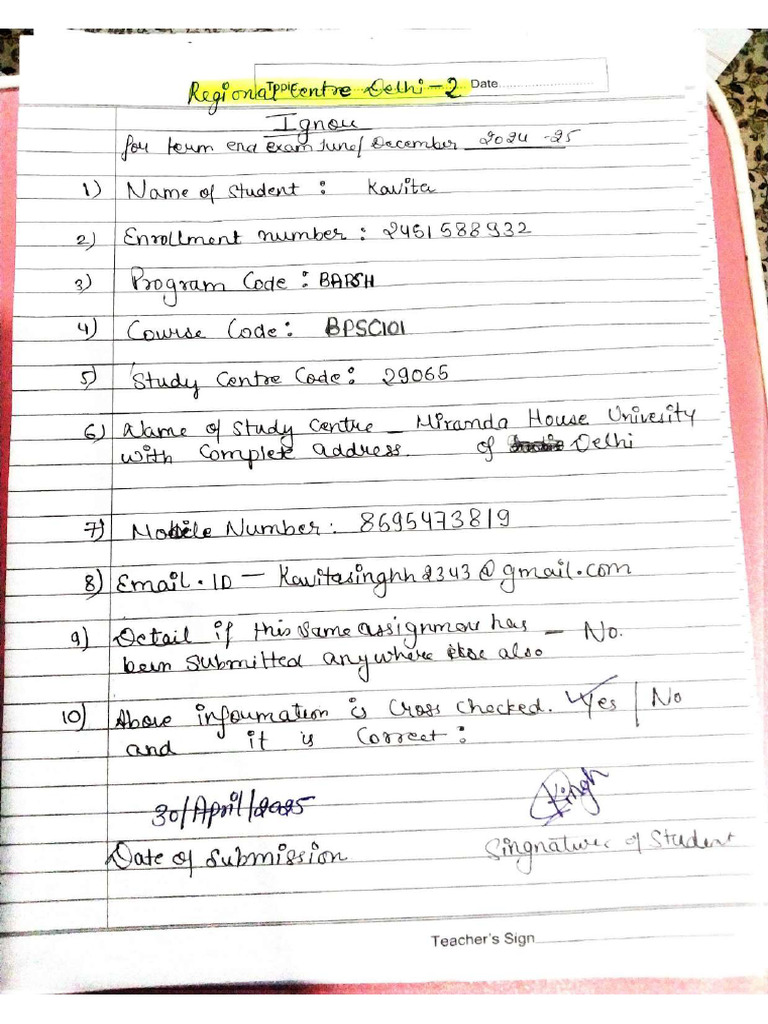 Regional Centre Delhi-2 Date
Ignou
for term end exam June/December 2024-25
1) Name of student : Kavita
2) Enrollment number : 2451588932
3) Program Code : BAPSH
4) Course Code : BPSC101
5) Study Centre Code : 29065
6) Name of Study Centre - Miranda House Univesity
with Complete address. of Delhi
7) Mobile Number : 8695473819
8) Email.ID - Kavitasinghh2343@gmail.com
9) Detail if this same assignment has - No.
been submitted anywhere else also
10) Above information is Cross checked. Yes / No
and it is Correct :
30/April/2025
KSingh
Date of Submission
Singnature of Student
Teacher's Sign